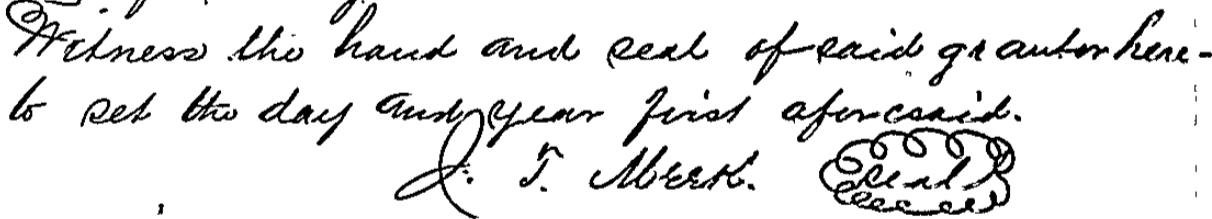 Witness the hand and seal of said grantor here-
to set the day and year first aforesaid.
J. T. Meek. Seal